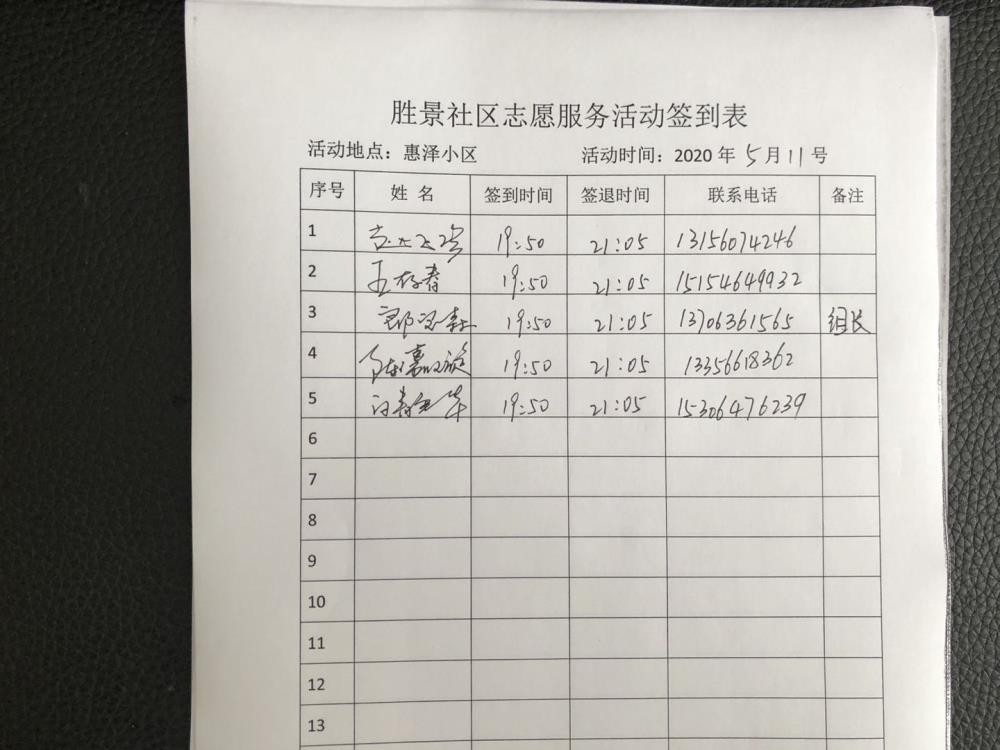 胜景社区志愿服务活动签到表
活动地点：惠泽小区 活动时间：2020 年 5 月 11 号
序号 姓 名 签到时间 签退时间 联系电话 备注
1 19:50 21:05 13156074246
2 王存春 19:50 21:05 15154649932
3 19:50 21:05 13706361565 组长
4 19:50 21:05 13356618362
5 19:50 21:05 15306476239
6
7
8
9
10
11
12
13